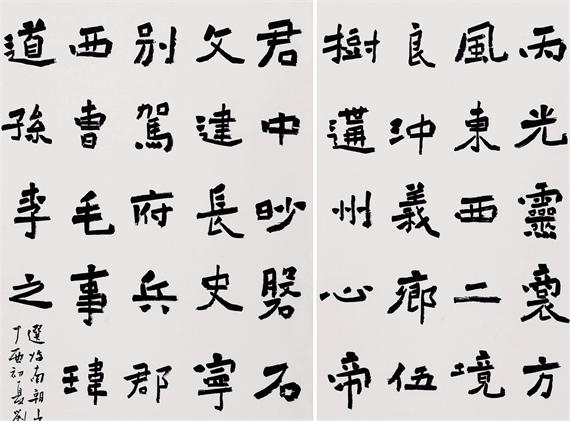 丙光靈方
風東西二境
良沖義鄉伍
樹遘州心帝
君中石
文建長史寧
別駕府兵郡
西曹毛事瑋
道孫李之
選临南朝
丁酉初夏劉